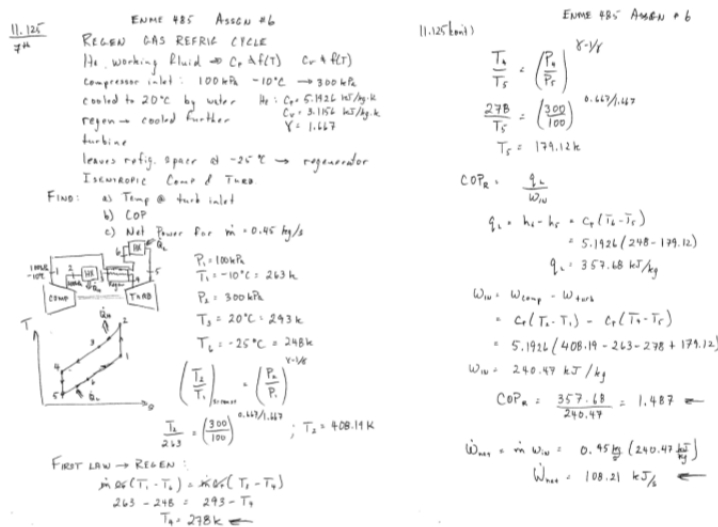 ENME 485 ASSGN #6
11.125
7th
REGEN GAS REFRIG CYCLE
He working fluid ⇒ Cp ≠ f(T) Cv ≠ f(T)
compressor inlet: 100 kPa -10°C → 300 kPa
cooled to 20°C by water He: Cp = 5.1926 kJ/kg·K
regen → cooled further Cv = 3.1156 kJ/kg·K
turbine γ = 1.667
leaves refig. space at -25°C → regenerator
ISENTROPIC COMP & TURB.
FIND: a) Temp @ turb inlet
b) COP
c) Net Power for ṁ = 0.45 kg/s
HX
Q̇L
100kPa
-10°C
1 2 HX 5
COMP TURB
P1 = 100kPa
T1 = -10°C = 263k
P2 = 300 kPa
T3 = 20°C = 293k
T6 = -25°C = 248k
T
2
3
1
4
6
5
Q̇L
(T2/T1) = (P2/P1)^γ-1/γ
T2/263 = (300/100)^0.667/1.667 ; T2 = 408.19 K
FIRST LAW → REGEN:
ṁ cp(T1 - T6) = ṁ cp(T3 - T4)
263 - 248 = 293 - T4
T4 = 278k ←
ENME 485 ASSGN #6
11.125 cont)
T4/T5 = (P4/P5)^γ-1/γ
278/T5 = (300/100)^0.667/1.667
T5 = 179.12k
COPR = qL/WIN
qL = h6 - h5 = cp(T6 - T5)
= 5.1926(248 - 179.12)
qL = 357.68 kJ/kg
WIN = Wcomp - Wturb
= cp(T2 - T1) - cp(T4 - T5)
= 5.1926(408.19 - 263 - 278 + 179.12)
WIN = 240.47 kJ/kg
COPR = 357.68/240.47 = 1.487 ←
Ẇnet = ṁ win = 0.45 kg/s (240.47 kJ/kg)
Ẇnet = 108.21 kJ/s ←